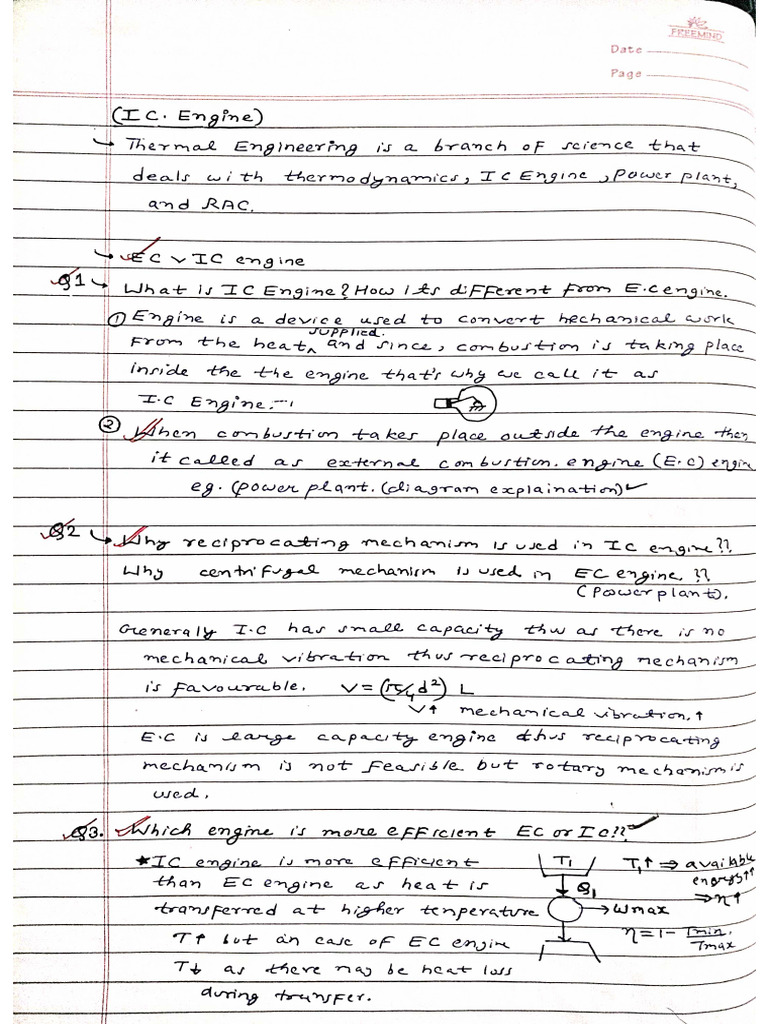 FREEMIND
Date
Page
(I C. Engine)
→ Thermal Engineering is a branch of science that
deals with thermodynamics, IC Engine, power plant,
and RAC.
→ EC v IC engine
Q1 → What is IC Engine? How its different from E.C engine.
① Engine is a device used to convert mechanical work
from the heat supplied. and since, combustion is taking place
inside the the engine that's why we call it as
I.C Engine.
② When combustion takes place outside the engine then
it called as external combustion. engine (E.C) engine
eg. (power plant. (diagram explaination) ✓
Q2 → Why reciprocating mechanism is used in IC engine??
Why centrifugal mechanism is used in EC engine.??
(power plant).
Generaly I.C has small capacity thus as there is no
mechanical vibration thus reciprocating mechanism
is favourable. V = (π/4 d²) L
V↑ mechanical vibration.↑
E.C is large capacity engine thus reciprocating
mechanism is not feasible but rotary mechanism is
used.
Q3. Which engine is more efficient EC or IC!!?
★ IC engine is more efficient
than EC engine as heat is
transferred at higher tenperature
T↑ but in case of EC engine
T↓ as there may be heat loss
during transfer.
T1
Q1
→ Wmax
T1↑ ⇒ available
energy↑↑
⇒ η↑
η = 1 - Tmin. / Tmax